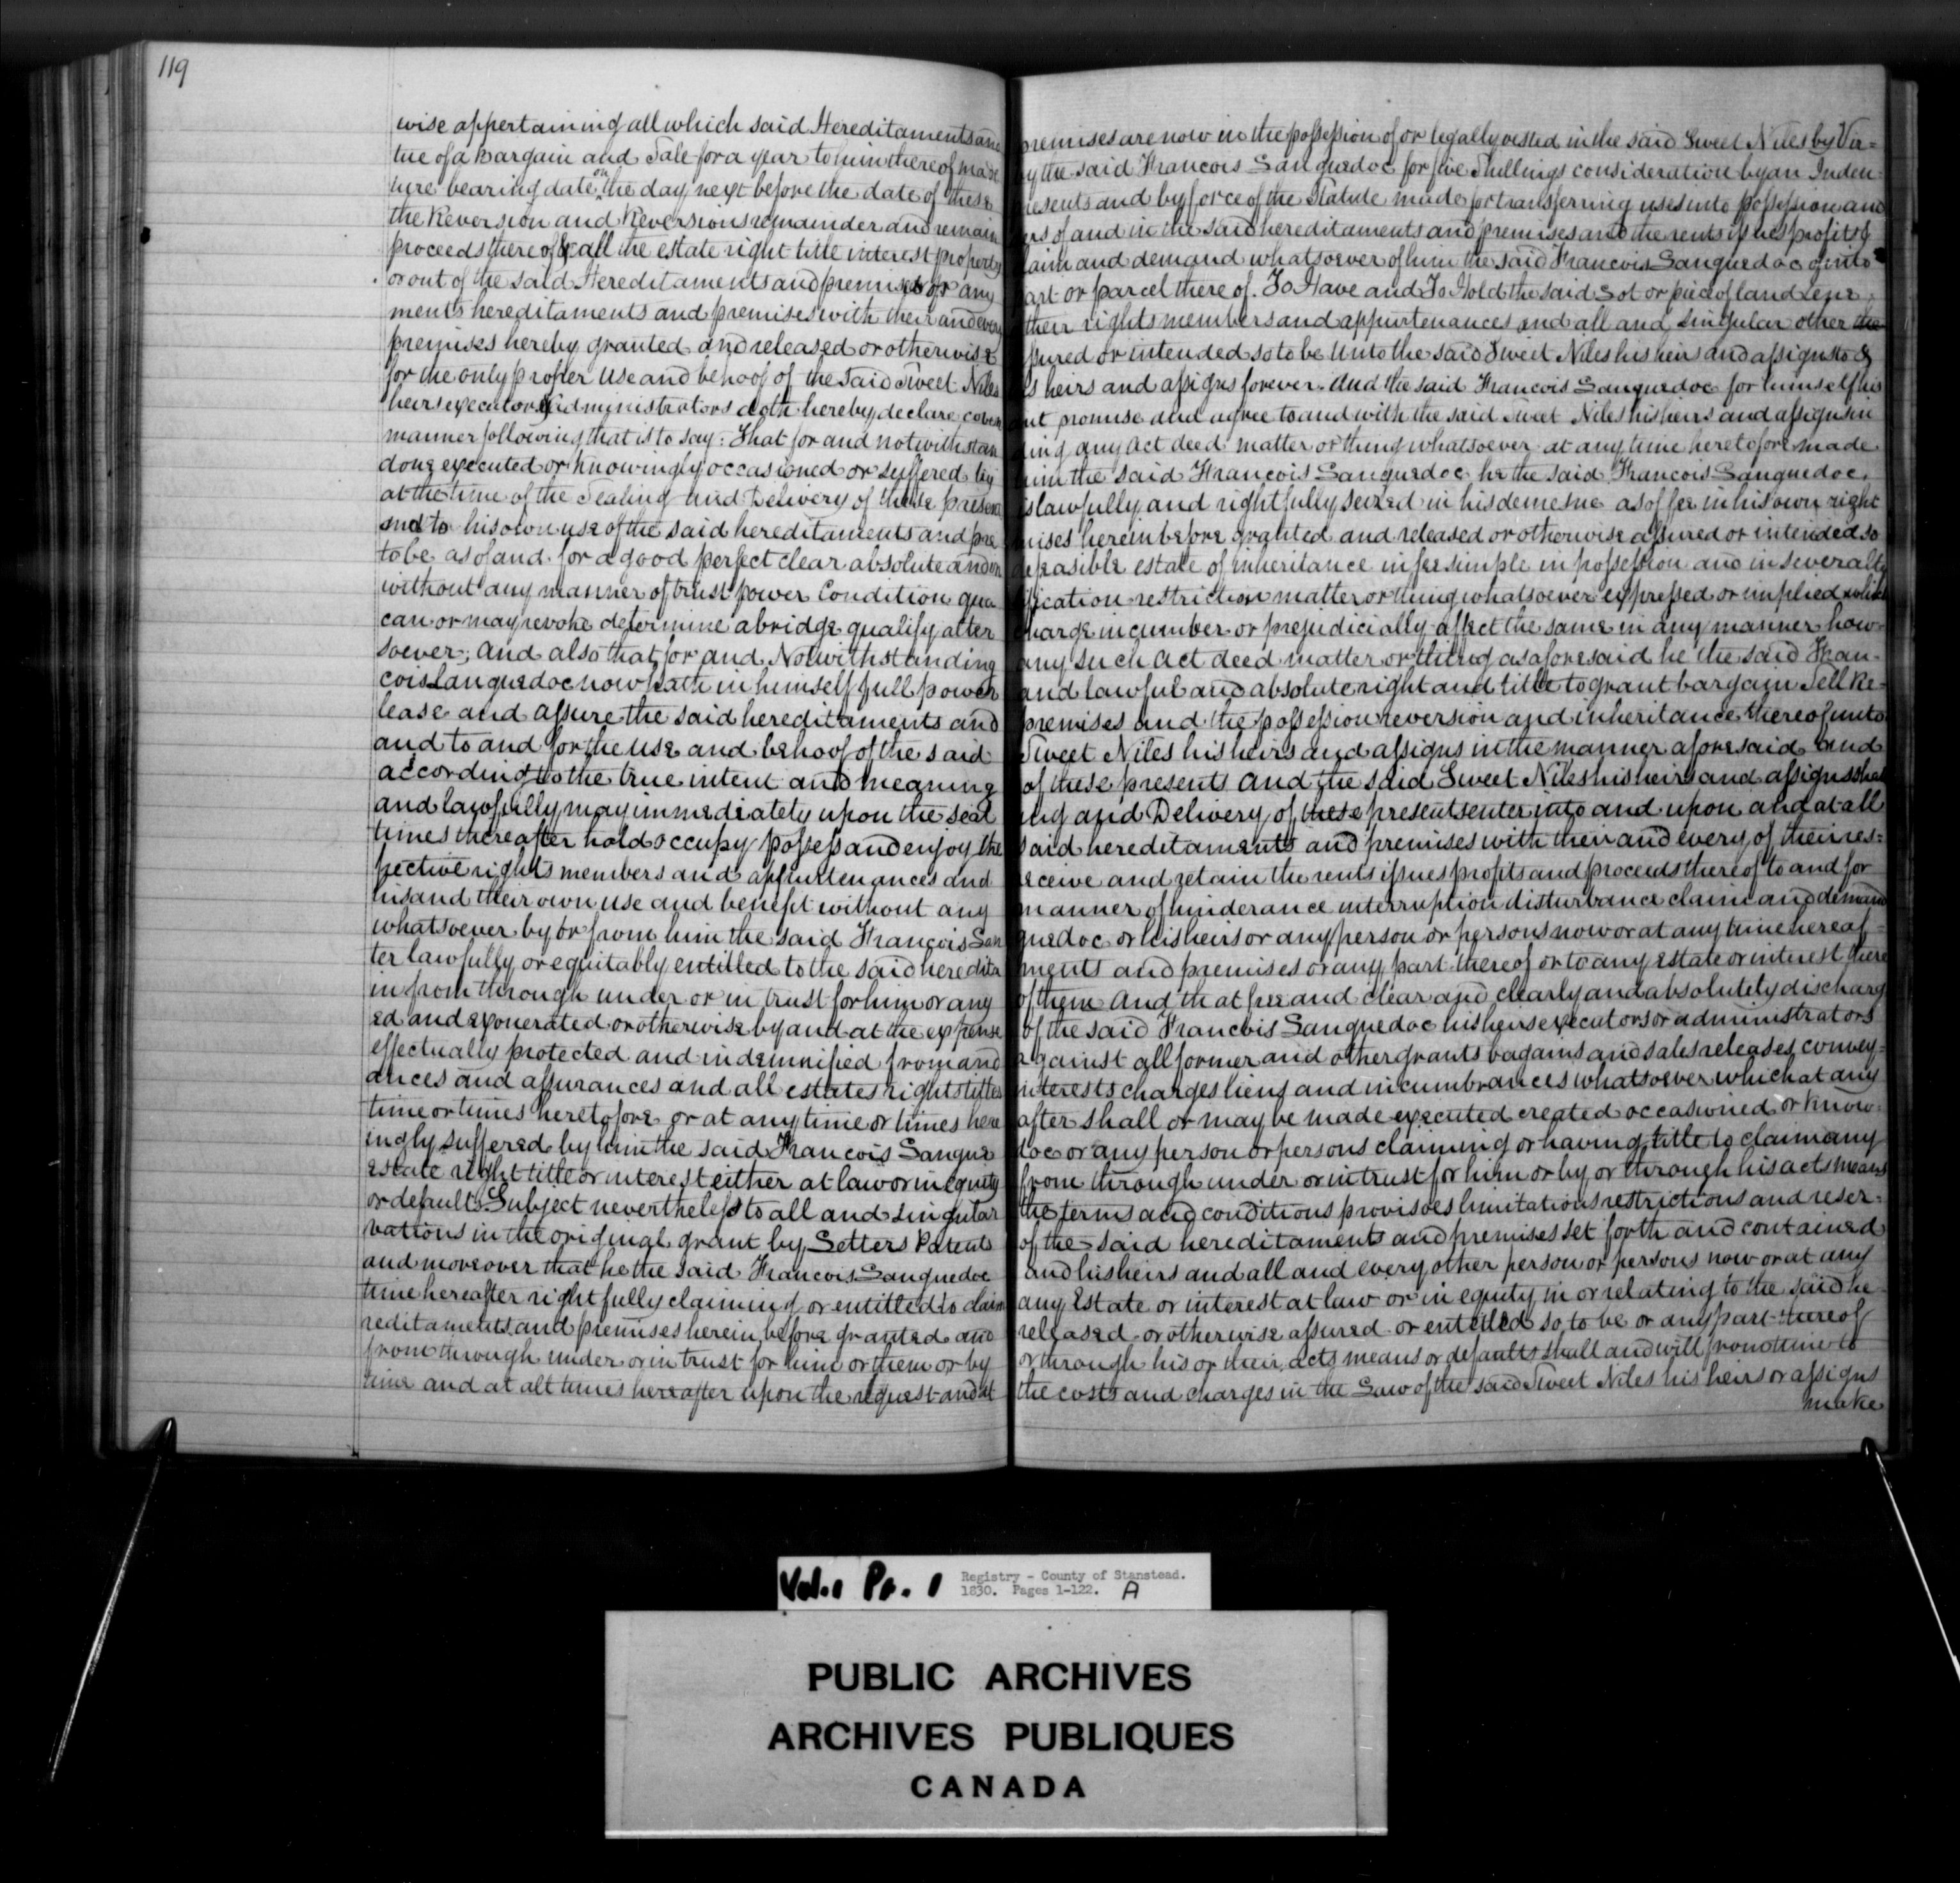 119
wise appertaining all which said Hereditaments and premises are now in the possession of or legally vested in the said Sweet Niles by Vir=
tue of a bargain and Sale for a year to him thereof made by the said Francois Languedoc for five Shillings consideration by an Inden=
ture bearing date on the day next before the date of these resents and by force of the Statute made for transferring uses into possession and
the Reversion and Reversions remainder and remain ers of and in the said hereditaments and premises and the rents issues profits &
proceeds thereof & all the estate right title interest property laim and demand whatsoever of him the said Francois Languedoc of into
or out of the said Hereditaments and premises or any art or parcel there of. To Have and To Hold the said Lot or piece of land Tene
ments hereditaments and premises with their and every their rights members and appurtenances and all and singular other the
premises hereby granted and released or otherwise ssured or intended so to be Unto the said Sweet Niles his heirs and assigns to &
for the only proper Use and behoof of the said Sweet Niles s heirs and assigns forever. And the said Francois Languedoc for himself his
heirs executors & administrators doth hereby declare coven ant promise and agree to and with the said Sweet Niles his heirs and assigns in
manner following that is to say: That for and notwithstan ding any Act deed matter or thing whatsoever at any time heretofore made
done executed or knowingly occasioned or suffered by him the said Francois Languedoc he the said Francois Languedoc,
at the time of the Sealing and Delivery of these presen is lawfully and rightfully seized in his demesne as of fee in his own right
and to his own use of the said hereditaments and pre mises herein before granted and released or otherwise assured or intended so
to be as of and for a good perfect clear absolute and in defeasible estate of inheritance in fee simple in possession and in severalty
without any manner of trust power Condition qua ification restriction matter or thing whatsoever expressed or implied which
can or may revoke determine abridge qualify alter charge incumber or prejudicially affect the same in any manner how=
soever; and also that for and Notwithstanding any such Act deed matter or thing as aforesaid he the said Fran-
cois Languedoc now hath in himself full power and lawful and absolute right and title to grant bargain Sell Re=
lease and assure the said hereditaments and premises and the possession reversion and inheritance thereof unto
and to and for the use and behoof of the said Sweet Niles his heirs and assigns in the manner aforesaid and
according to the true intent and meaning of these presents And the said Sweet Niles his heirs and assigns shal
and lawfully may immediately upon the seal ing and Delivery of these presents enter into and upon and at all
times thereafter hold occupy possess and enjoy the said hereditaments and premises with their and every of their res=
pective rights members and appurtenances and receive and retain the rents issues profits and proceeds thereof to and for
his and their own use and benefit without any manner of hinderance interruption disturbance claim and demand
whatsoever by or from him the said François Lan guedoc or his heirs or any person or persons now or at any time hereaf=
ter lawfully or equitably entitled to the said heredita ments and premises or any part thereof or to any estate or interest there
in from through under or in trust for him or any of them And that free and clear and clearly and absolutely discharg
ed and exonerated or otherwise by and at the expense of the said Francois Languedoc his heirs executors or administrators
effectually protected and indemnified from and against all former and other grants bagains and sales releases, convey=
ances and assurances and all estates rights titles interests charges liens and incumbrances whatsoever which at any
time or times heretofore or at any time or times here after shall or may be made executed created occasioned or know=
ingly suffered by him the said Francois Langue doc or any person or persons claiming or having title to claim any
estate right title or interest either at law or in equity from through under or in trust for him or by or through his acts means
or defaults. Subject nevertheless to all and singular the terms and conditions provisoes limitations restrictions and reser=
vations in the original grant by Letters Patents of the said hereditaments and premises set forth and contained
and moreover that he the said Francois Languedoc and his heirs and all and every other person or persons now or at any
time hereafter rightfully claiming or entitled to claim any Estate or interest at law or in equity in or relating to the said he
reditaments and premises herein before granted and released or otherwise assured or entitled so to be or any part thereof
from through under or in trust for him or them or by or through his or their acts means or defaults shall and will from time to
time and at all times hereafter upon the request and at the costs and charges in the Law of the said Sweet Niles his heirs or assigns
make
Vol. 1 Pa. 1 Registry - County of Stanstead.
1830. Pages 1-122. A
PUBLIC ARCHIVES
ARCHIVES PUBLIQUES
CANADA